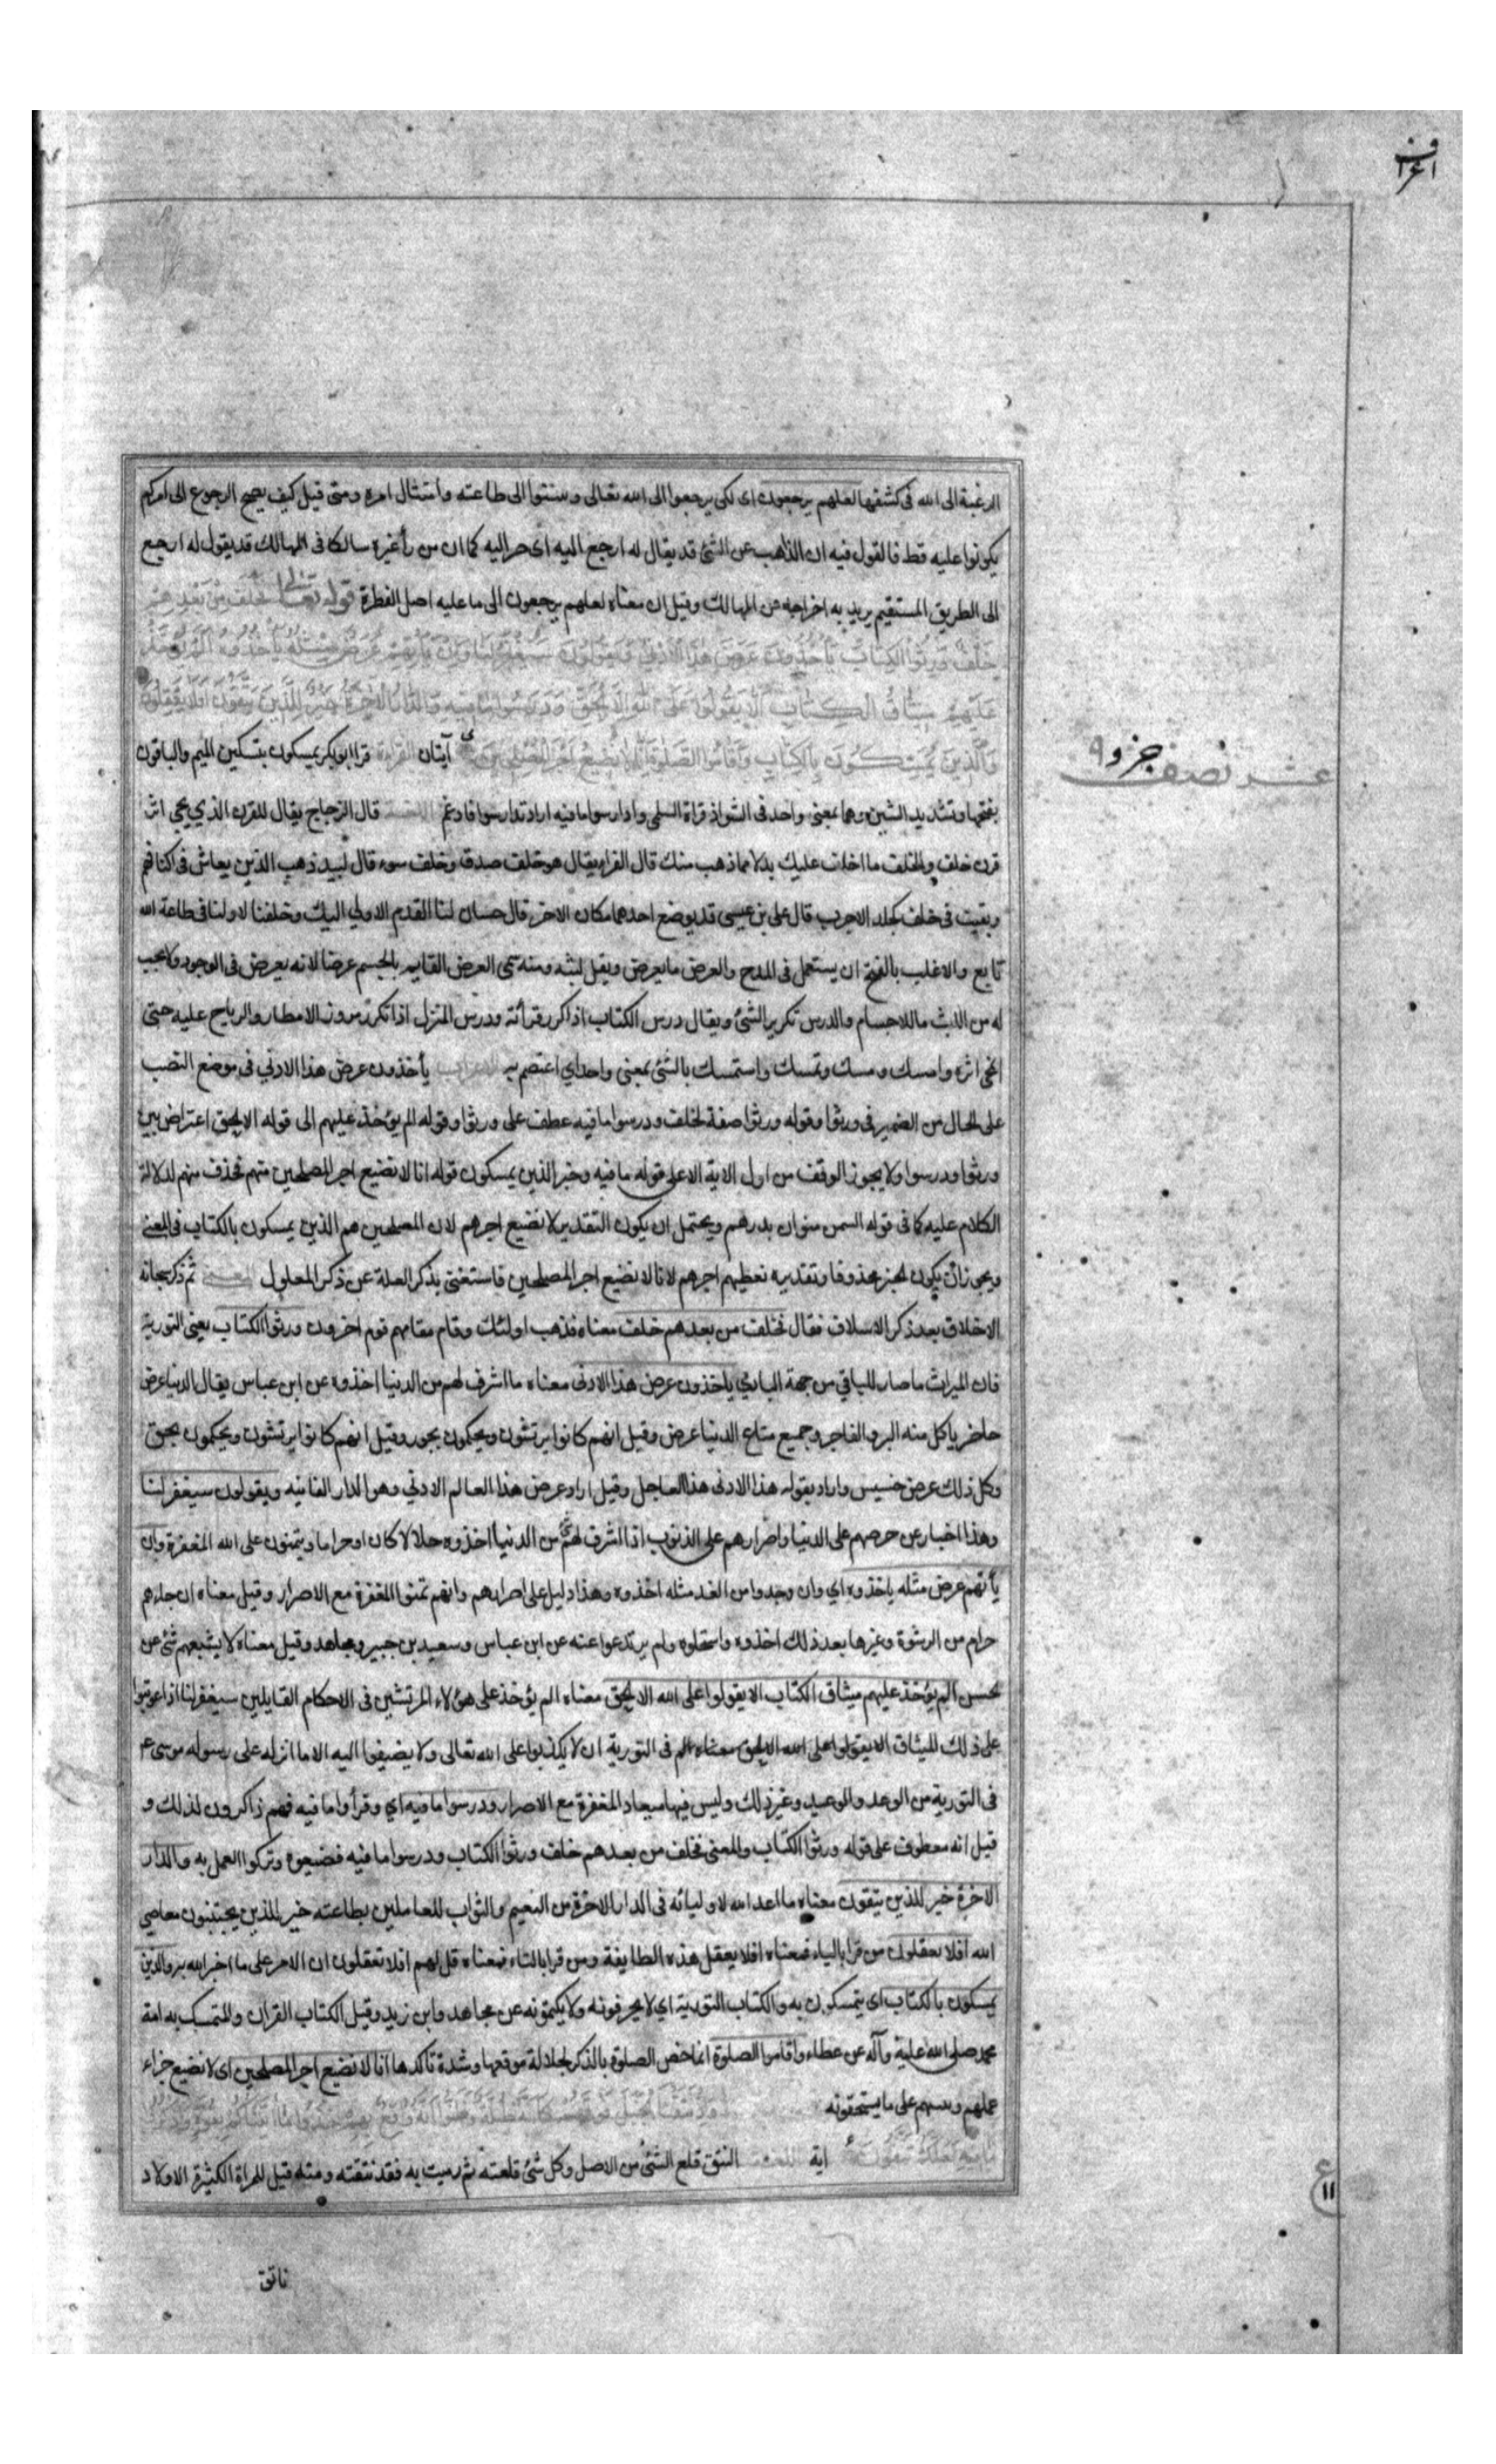 اعراف
الرغبة الى الله فى كشفها لعلهم يرجعون اى لكى يرجعوا الى الله تعالى وينتوا الى طاعته وامتثال امره ومتى قيل كيف يصح الرجوع الى امر لم
يكونوا عليه قط فالقول فيه ان الذاهب عن الشئ قد يقال له ارجع اليه اى صر اليه كما ان من رأ غيره سالكا فى المهالك قد يقول له ارجع
الى الطريق المستقيم يريد به اخراجه عن المهالك وقيل ان معناه لعلهم يرجعون الى ما عليه اصل الفطرة قوله تعالى فخلف من بعدهم
خلف ورثوا الكتاب يأخذون عرض هذا الادنى ويقولون سيغفر لنا وان يأتهم عرض مثله يأخذوه الم يؤخذ
عليهم ميثاق الكتاب الا يقولوا على الله الا الحق ودرسوا ما فيه والدار الاخرة خير للذين يتقون افلا يعقلون
والذين يمسكون بالكتاب واقاموا الصلوة انا لا نضيع اجر المصلحين آيتان القراءة قرا ابو بكر يمسكون بتسكين الميم والباقون
عشر نصف جزو ٩
بفتحها وتشديد الشين وهما بمعنى واحد فى الشواذ قراة السلمى وادارسوا ما فيه اراد تدارسوا فادغم قال الزجاج يقال للقرن الذي يجي اثر
قرن خلف والخلف ما اخلف عليك بدلا مما ذهب منك قال الفراء يقال هو خلف صدق وخلف سوء قال لبيد ذهب الذين يعاش فى اكنافهم
وبقيت فى خلف كجلد الاجرب قال على بن عيسى قد يوضع احدهما مكان الاخر قال حسان لنا القدم الاولى اليك وخلفنا لاولنا فى طاعة الله
تابع والاغلب بالفتح ان يستعمل فى المدح والعرض ما يعرض ويقل لبثه ومنه سمى العرض القايم بالجسم عرضا لانه يعرض فى الوجود ولا يجب
له من اللبث ما للاجسام والدرس تكرير الشئ ويقال درس الكتاب اذا كرر قرأته ودرس المنزل اذا تكرر مرور الامطار والرياح عليه حتى
انمحى اثره وامسك ومسك وتمسك واستمسك بالشئ بمعنى واحد اي اعتصم به الاعراب يأخذون عرض هذا الادنى فى موضع النصب
على الحال من الضمير فى ورثوا وقوله ورثوا صفة لخلف ودرسوا ما فيه عطف على ورثوا وقوله الم يؤخذ عليهم الى قوله الا الحق اعتراض بين
ورثوا ودرسوا ولا يجوز الوقف من اول الاية الا على قوله ما فيه وخبر الذين يمسكون قوله انا لا نضيع اجر المصلحين منهم فحذف منهم لدلالة
الكلام عليه كما فى قوله السمن منوان بدرهم ويحتمل ان يكون التقدير لا نضيع اجرهم لان المصلحين هم الذين يمسكون بالكتاب فى المعنى
ويجوز ان يكون الخبر محذوفا وتقديره نعطيهم اجرهم لانا لا نضيع اجر المصلحين فاستغنى بذكر العلة عن ذكر المعلول المعنى ثم ذكر سبحانه
الاخلاق بعد ذكر الاسلاف فقال فخلف من بعدهم خلف معناه فذهب اولئك وقام مقامهم قوم اخرون ورثوا الكتاب يعنى التورية
فان الميراث ما صار للباقي من جهة البادي ياخذون عرض هذا الادنى معناه ما اشرف لهم من الدنيا اخذوه عن ابن عباس يقال الدنيا عرض
حاضر ياكل منه البر والفاجر وجميع متاع الدنيا عرض وقيل انهم كانوا يرتشون ويحكمون بجور وقيل انهم كانوا يرتشون ويحكمون بحق
وكل ذلك عرض خسيس واراد بقوله هذا الادنى هذا العاجل وقيل اراد عرض هذا العالم الادنى وهو الدار الفانيه ويقولون سيغفر لنا
وهذا اخبار عن حرصهم على الدنيا واصرارهم على الذنوب اذا اشرف لهم شئ من الدنيا اخذوه حلالا كان او حراما ويتمنون على الله المغفرة وان
يأتهم عرض مثله ياخذوه اي وان وجدوا من الغد مثله اخذوه وهذا دليل على اصرارهم وانهم تمنوا المغفرة مع الاصرار وقيل معناه ان جاءهم
حرام من الرشوة وغيرها بعد ذلك اخذوه واستحلوه ولم يرتدعوا عنه عن ابن عباس وسعيد بن جبير ومجاهد وقيل معناه لا يشبعهم شئ عن
الحسن الم يؤخذ عليهم ميثاق الكتاب الا يقولوا على الله الا الحق معناه الم يؤخذ على هؤلاء المرتشين فى الاحكام القايلين سيغفر لنا اذا عوتبوا
على ذلك الميثاق الا يقولوا على الله الا الحق معناه الم فى التورية ان لا يكذبوا على الله تعالى ولا يضيفوا اليه الا ما انزله على رسوله موسى ع
فى التورية من الوعد والوعيد وغير ذلك وليس فيها ميعاد المغفرة مع الاصرار ودرسوا ما فيه اي وقرأوا ما فيه فهم ذاكرون لذلك و
قيل انه معطوف على قوله ورثوا الكتاب والمعنى فخلف من بعدهم خلف ورثوا الكتاب ودرسوا ما فيه فضيعوه وتركوا العمل به والدار
الاخرة خير للذين يتقون معناه ما اعد الله لاوليائه فى الدار الاخرة من النعيم والثواب للعاملين بطاعته خير للذين يجتنبون معاصي
الله افلا يعقلون من قرا بالياء فمعناه افلا يعقل هذه الطايفة ومن قرا بالتاء فمعناه قل لهم افلا تعقلون ان الامر على ما اخبر الله به والذين
يمسكون بالكتاب اى يتمسكون به والكتاب التورية اي لا يحرفونه ولا يكتمونه عن مجاهد وابن زيد وقيل الكتاب القران والمتمسك به امة
محمد صلى الله عليه وآله عن عطاء واقاموا الصلوة انما خص الصلوة بالذكر لجلالة موقعها وشدة تأكدها انا لا نضيع اجر المصلحين اى لا نضيع جزاء
عملهم ونثيبهم على ما يستحقونه واذ نتقنا الجبل فوقهم كانه ظلة وظنوا انه واقع بهم خذوا ما اتيناكم بقوة واذكروا
ما فيه لعلكم تتقون اية اللغة النتق قلع الشئ من الاصل وكل شئ قلعته ثم رميت به فقد نتقته ومنه قيل للمراة الكثيرة الاولاد
ع
١١
ناتق